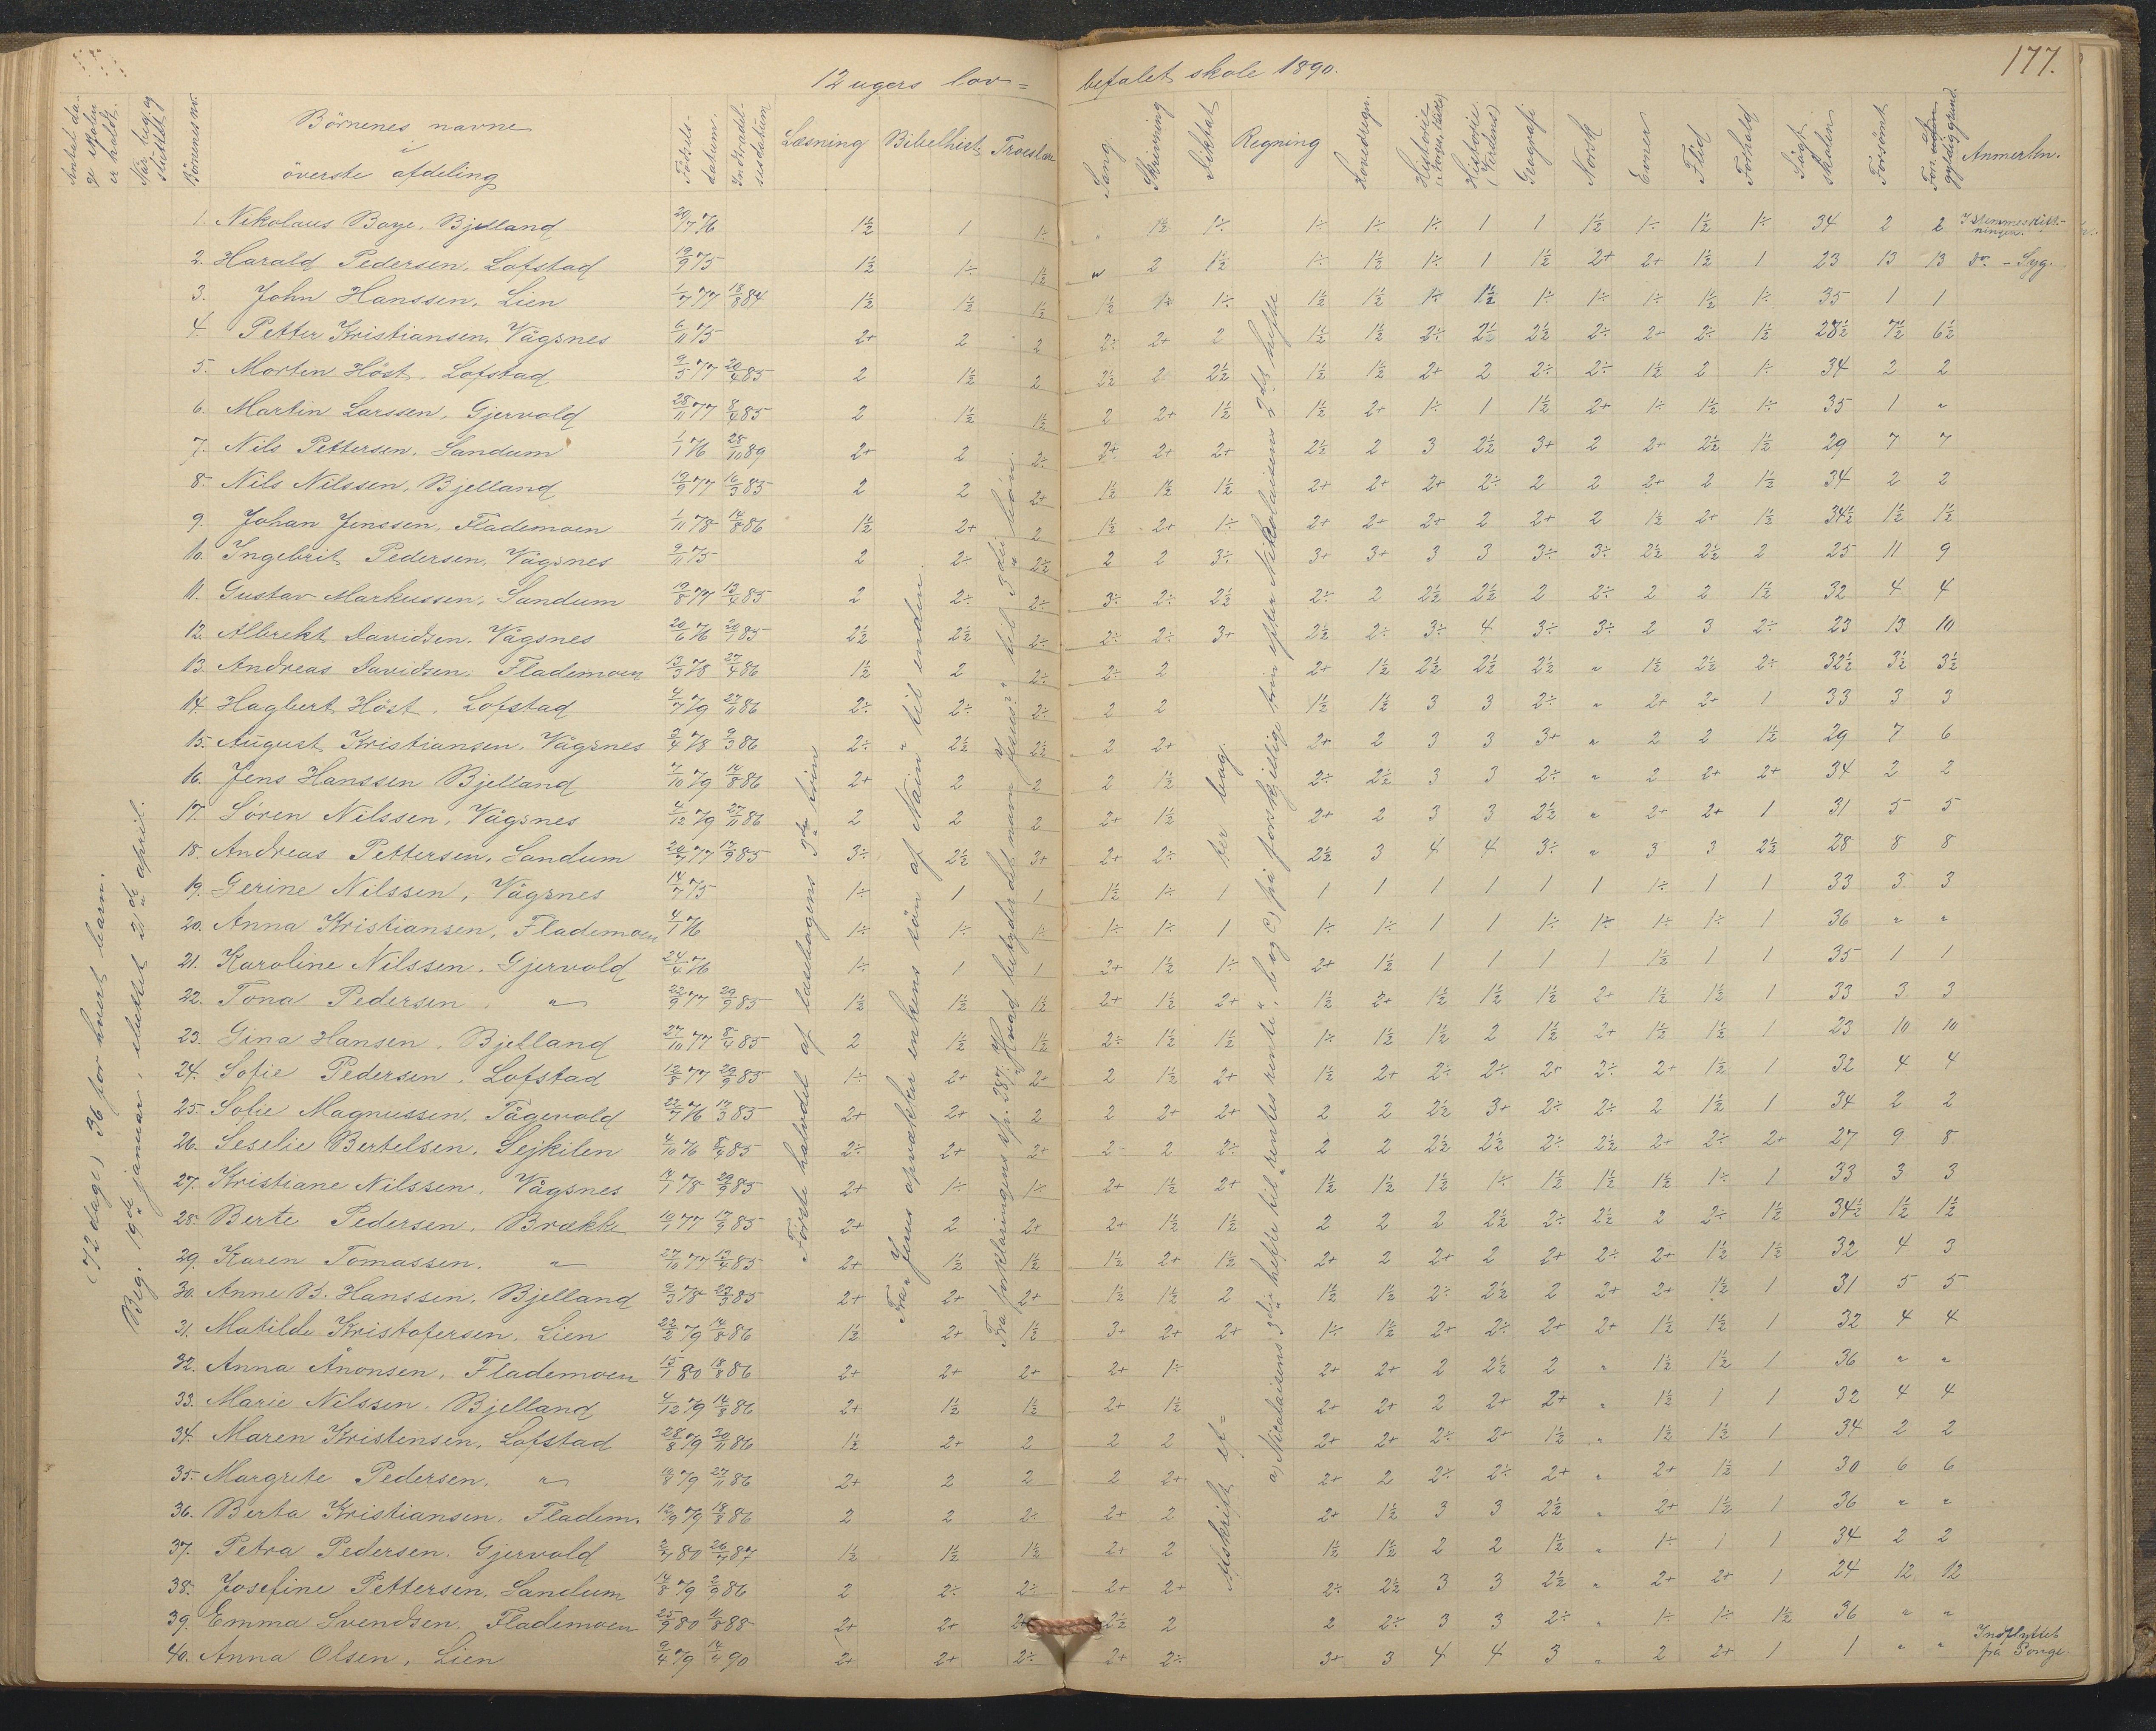 177.
12 ugers lov= befalet skole 1890.
Antal da- ge skolen er holdt.
Når beg. og sluttet
Börnenes nr.
Börnenes navne i överste afdeling
Födsels- datum.
Indtrædel- sesdatum
Læsning
Bibelhist.
Troeslære
Sang.
Skrivning
Diktat
Regning
Hovedregn.
Historie
Historie (Verdens)
Geografi
Norsk
Evner
Flid
Forhold
Sögt skolen
Forsömt
gyldig grund.
Anmerkn.
(72 dage) 36 for hvert barn.
Beg. 19de januar, sluttet 21de april.
Förste halvdel af læsebogens 3die trin
Fra Jesus opvækker enkens sön af Nain til enden.
Fra forklaringens sp. 287 "Hvad betyder det navn Jesus?" til 3die bön.
Afskrift ef= ter bog.
a) Nicolaisens 3die hefte til "rentes rente", b og c) på forskjellige trin efter Nikolaisens 2det hefte
1. Nikolaus Boye. Bjelland 20/7 76 1½ 1 1÷ " 1½ 1÷ 1÷ 1÷ 1÷ 1 1 1½ 1÷ 1½ 1÷ 34 2 2 I stemmeskift- ningen.
2. Harald Pedersen. Lofstad 19/9 75 1½ 1÷ 1½ " 2 1½ 1÷ 1½ 1÷ 1 1½ 2+ 2+ 1½ 1 23 13 13 do. - Syg.
3. John Hanssen. Lien 1/7 77 18/8 84 1½ 1½ 1½ 1½ 1÷ 1÷ 1½ 1½ 1÷ 1½ 1÷ 1÷ 1÷ 1½ 1÷ 35 1 1
4. Petter Kristiansen. Vågsnes 6/11 75 2+ 2 2 2÷ 2+ 2 1½ 1½ 2÷ 2½ 2½ 2÷ 2+ 2÷ 1½ 28½ 7½ 6½
5. Morten Höst. Lofstad 9/5 77 20/4 85 2 1½ 2 2½ 2 2½ 1½ 1½ 2+ 2 2÷ 2÷ 1½ 2 1÷ 34 2 2
6. Martin Larssen, Gjervold 28/11 77 8/4 85 2 1½ 1½ 2 2+ 1½ 1½ 2+ 1÷ 1 1½ 2+ 1÷ 1½ 1÷ 35 1 "
7. Nils Pettersen. Sandum 1/1 76 28/10 89 2+ 2 2÷ 2+ 2+ 2+ 2½ 2 3 2½ 3+ 2 2+ 2½ 1½ 29 7 7
8. Nils Nilssen, Bjelland 19/9 77 16/3 85 2 2 2+ 1½ 1½ 1½ 2+ 2+ 2+ 2÷ 2 2 2+ 2 1½ 34 2 2
9. Johan Jenssen, Flademoen 1/11 78 14/8 86 1½ 2+ 2 1½ 2+ 1÷ 2+ 2+ 2+ 2 2+ 2 1½ 2+ 1½ 34½ 1½ 1½
10. Ingebrit Pedersen, Vågsnes 9/11 75 2 2÷ 2½ 2 2 3÷ 3+ 3+ 3 3 3÷ 3÷ 2½ 2½ 2 25 11 9
11. Gustav Markussen, Sandum 19/8 77 13/4 85 2 2÷ 2÷ 3÷ 2÷ 2½ 2÷ 2 2½ 2½ 2 2÷ 2 2 1½ 32 4 4
12. Albrekt Davidsen. Vågsnes 20/6 76 20/1 85 2½ 2½ 2÷ 2÷ 2÷ 3+ 2½ 2÷ 3÷ 4 3÷ 3÷ 2 3 2÷ 23 13 10
13. Andreas Davidsen. Flademoen 13/3 78 27/4 86 1½ 2 2÷ 2÷ 2 2+ 1½ 2½ 2½ 2½ " 1½ 2½ 2÷ 32½ 3½ 3½
14. Hagbert Höst. Lofstad 4/7 79 27/11 86 2÷ 2÷ 2÷ 2 2 1½ 1½ 3 3 2÷ " 2+ 2+ 1 33 3 3
15. August Kristiansen. Vågsnes 2/4 78 9/3 86 2÷ 2½ 2½ 2 2+ 2+ 2 3 3 3+ " 2 2 1½ 29 7 6
16. Jens Hanssen Bjelland 7/10 79 14/8 86 2+ 2 2 2 1½ 2÷ 2½ 3 3 2÷ " 2 2+ 2+ 34 2 2
17. Sören Nilssen, Vågsnes 4/12 79 27/11 86 2 2 2 2+ 1½ 2+ 2 3 3 2½ " 2+ 2+ 1 31 5 5
18. Andreas Pettersen, Sandum 20/7 77 17/9 85 3÷ 2½ 3+ 2+ 2÷ 2½ 3 4 4 3÷ " 3 3 2½ 28 8 8
19. Gerine Nilssen, Vågsnes 14/7 75 1÷ 1 1 1½ 1÷ 1 1 1 1 1 1 1 1÷ 1 1 33 3 3
20. Anna Kristiansen, Flademoen 4/1 76 1÷ 1÷ 1÷ 1÷ 1÷ 1 1÷ 1÷ 1 1 1÷ 1÷ 1÷ 1÷ 1 36 " "
21. Karoline Nilssen. Gjervold 24/4 76 1÷ 1 1 2+ 1½ 1÷ 2+ 1½ 1 1 1 1 1½ 1 1 35 1 1
22. Tona Pedersen. " 22/9 77 29/9 85 1½ 1½ 1½ 2+ 1½ 2+ 1½ 2+ 1½ 1½ 1½ 2+ 1½ 1½ 1 33 3 3
23. Gina Hansen. Bjelland 27/10 77 8/4 85 2 1½ 1½ 2÷ 1½ 1½ 1÷ 1½ 1½ 2 1½ 2+ 1½ 1½ 1 23 10 10
24. Sofie Pedersen. Lofstad 12/8 77 29/9 85 1÷ 2+ 2+ 2 1½ 2+ 1½ 2+ 2÷ 2÷ 2+ 2÷ 2+ 1½ 1 32 4 4
25. Sofie Magnussen. Tågevold 22/7 76 17/3 85 2+ 2+ 2 2 2+ 2+ 2 2 2½ 3+ 2÷ 2÷ 2 1½ 1 34 2 2
26. Seselie Bertelsen. Sejkilen 4/10 76 8/4 85 2÷ 2+ 2+ 2 2 2÷ 2 2 2½ 2½ 2÷ 2½ 2+ 2÷ 2+ 27 9 8
27. Kristiane Nilssen. Vågsnes 14/1 78 29/9 85 2+ 1÷ 1÷ 2+ 1½ 2+ 1½ 1½ 1½ 1÷ 1½ 1½ 1½ 1÷ 1 33 3 3
28. Berte Pedersen. Brække 10/1 77 17/9 85 2+ 2 2+ 2+ 1½ 1½ 2 2 2 2½ 2÷ 2½ 2 2÷ 1½ 34½ 1½ 1½
29. Karen Tomassen. " 27/10 77 13/4 85 2+ 1½ 1½ 1½ 2+ 1½ 2+ 2 2+ 2 2+ 2÷ 2+ 1½ 1½ 32 4 3
30. Anne B. Hanssen. Bjelland 9/3 78 23/3 85 2+ 2+ 2+ 1½ 1½ 2 1½ 1½ 2÷ 2½ 2 2+ 2+ 1½ 1 31 5 5
31. Matilde Kristofersen. Lien 22/2 79 14/8 86 1½ 2+ 1½ 3+ 2+ 2+ 1÷ 1½ 2+ 2÷ 2+ 2+ 1½ 1½ 1 32 4 4
32. Anna Ånonsen, Flademoen 15/1 80 18/8 86 2+ 2+ 2+ 2+ 1÷ 2+ 2+ 2 2½ 2 " 1½ 1½ 1 36 " "
33. Marie Nilssen. Bjelland 4/12 79 14/8 86 2+ 1½ 1½ 2+ 1½ 2+ 2+ 2 2+ 2+ " 1½ 1 1 32 4 4
34. Maren Kristensen. Lofstad 28/8 79 30/11 86 1½ 2+ 2 2 2 2+ 2+ 2÷ 2+ 1½ " 1½ 1½ 1 34 2 2
35. Margrete Pedersen. " 19/8 79 27/11 86 2+ 2 2 2 2+ 2+ 2 2÷ 2÷ 2+ " 2+ 1½ 1 30 6 6
36. Berta Kristiansen. Fladem. 12/9 79 18/8 86 2 2 2÷ 2+ 2 2+ 1½ 3 3 2½ " 2+ 1½ 1 36 " "
37. Petra Pedersen. Gjervold 2/7 80 26/7 87 1½ 1½ 1½ 2+ 2 1½ 1½ 2 2 1½ " 1÷ 1 1 34 2 2
38. Josefine Pettersen. Sandum 14/8 79 2/9 86 2 2÷ 2÷ 2+ 2+ 2÷ 2½ 3 3 2½ " 2+ 2+ 1 24 12 12
39. Emma Svendsen. Flademoen 25/9 80 11/8 88 2+ 2+ 2+ 2½ 2 2 2÷ 3 3 2÷ " 1÷ 1÷ 1½ 36 " "
40. Anna Olsen, Lien 9/4 79 14/4 90 2+ 2+ 2÷ 2+ 2÷ 3+ 3 4 4 3 " 2 2+ 1 1 " " Indflyttet fra Songe.